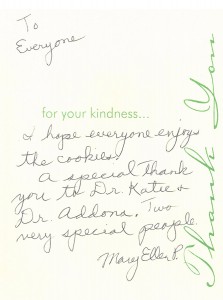 To
Everyone
Thank You
for your kindness...
I hope everyone enjoys
the cookies.
A special thank
you to Dr. Katie &
Dr. Addona. Two
very special people.
Mary Ellen P.